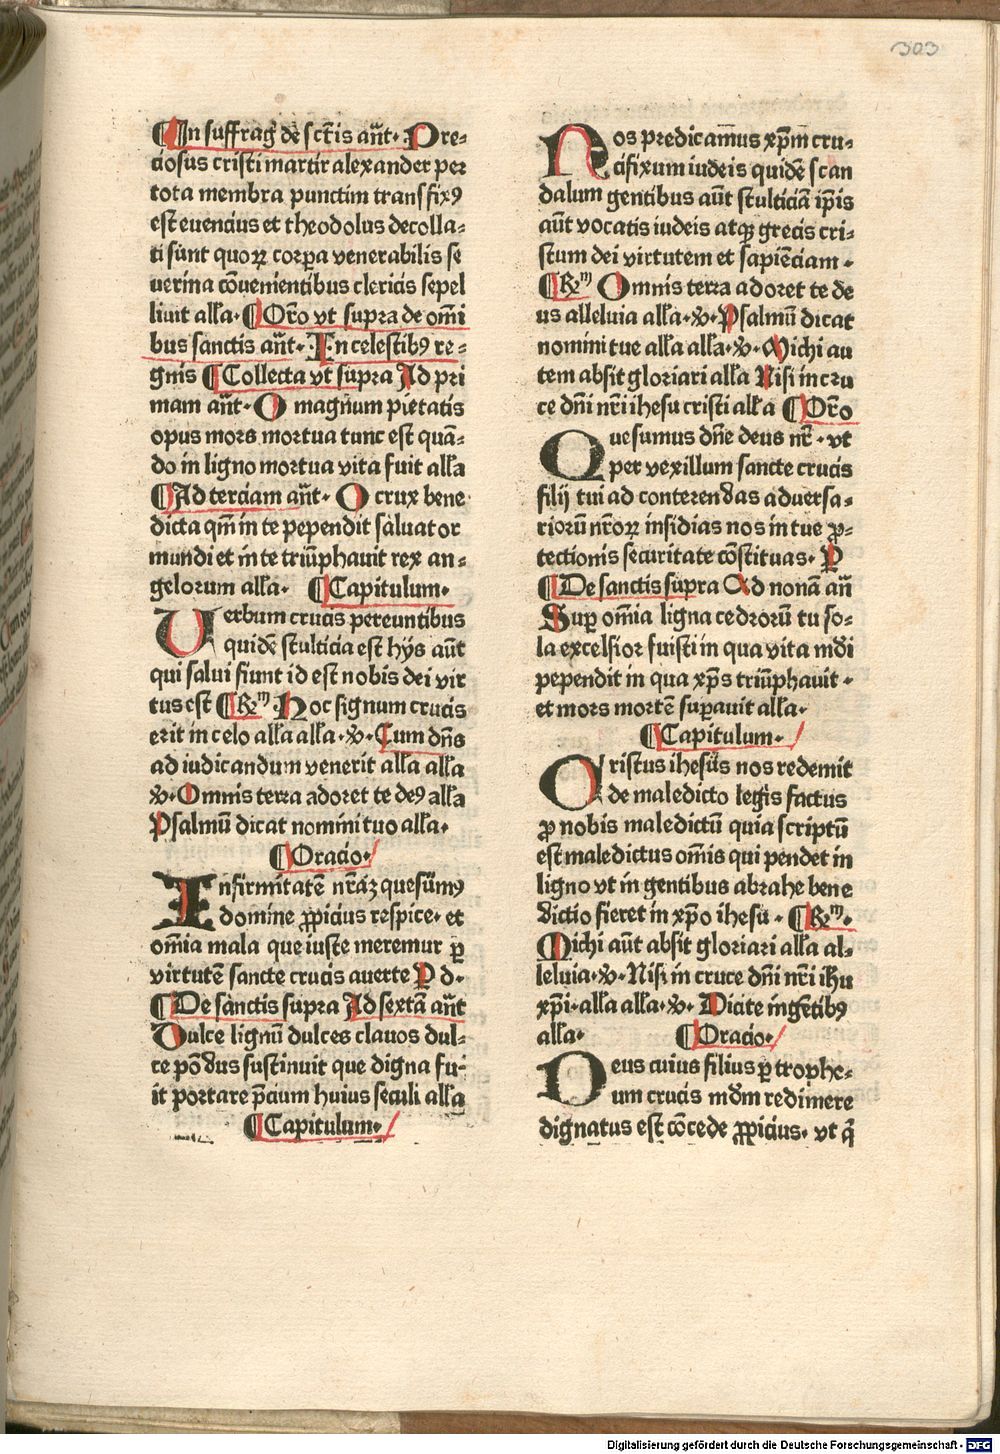 303
¶In suffrag̃ de sc̃tis añt· Pre-
ciosus cristi martir alexander per
tota membra punctim transfixꝰ
est euencius et theodolus decolla-
ti sunt quoꝝ corꝑa venerabilis se
uerina cõuenientibus clericis sepel
liuit alla· ¶Oro vt supra de omĩ
bus sanctis añt· In celestibꝰ re-
gnis ¶Collecta vt supra Ad pri
mam añt· O magnum pietatis
opus mors mortua tunc est quã-
do in ligno mortua vita fuit alla
¶Ad terciam añt· O crux bene
dicta qm̃ in te pependit saluator
mundi et in te triũphauit rex an-
gelorum alla· ¶Capitulum·
Verbum crucis pereuntibus
quidẽ stulticia est hÿs aũt
qui salui fiunt id est nobis dei vir
tus est ¶R̃m Hoc signum crucis
erit in celo alla alla·v· Cum dñs
ad iudicandum venerit alla alla
v·Omnis terra adoret te deꝰ alla
Psalmũ dicat nomini tuo alla·
¶Oracio·
Infirmitatẽ nrãꝫ quesũmꝰ
domine ꝓpicius respice· et
omĩa mala que iuste meremur ꝑ
virtutẽ sancte crucis auerte P d·
¶De sanctis supra Ad sextã añt
Dulce lignũ dulces clauos dul-
ce põdus sustinuit que digna fu-
it portare p̃cium huius seculi alla
¶Capitulum·
Nos predicam̃us xp̃m cru-
cifixum iudeis quidẽ scan
dalum gentibus aũt stulticiã ip̃is
aũt vocatis iudeis atqꝫ grecis cri-
stum dei virtutem et sapiẽciam·
¶R̃m Omnis terra adoret te de
us alleluia alla·v·Psalmũ dicat
nomini tue alla alla·v·Michi au
tem absit gloriari alla Nisi in cru
ce dñi nr̃i ihesu cristi alla ¶Oro
Quesumus dñe deus nr̃·vt
per vexillum sancte crucis
filij tui ad conterendas aduersa-
riorũ nr̃oꝝ insidias nos in tue ꝓ-
tectionis securitate cõstituas· P
¶De sanctis supra Ad nonã añ
Suꝑ omĩa ligna cedrorũ tu so-
la excelsior fuisti in qua vita mũdi
pependit in qua xp̃s triũphauit·
et mors mortẽ suꝑauit alla·
¶Capitulum·
Cristus ihesũs nos redemit
de maledicto legis factus
ꝓ nobis maledictũ quia scriptũ
est maledictus om̃is qui pendet in
ligno vt in gentibus abrahe bene
dictio fieret in xp̃o ihesu·¶R̃m·
Michi aũt absit gloriari alla al-
leluia·v·Nisi in cruce dñi nr̃i ihu
xp̃i·alla alla·v· Dicite in gẽtibꝰ
alla· ¶Oracio·
Deus cuius filius ꝑ trophe-
um crucis mũdm redimere
dignatus est cõcede ꝓpicius· vt q̃
Digitalisierung gefördert durch die Deutsche Forschungsgemeinschaft - DFG